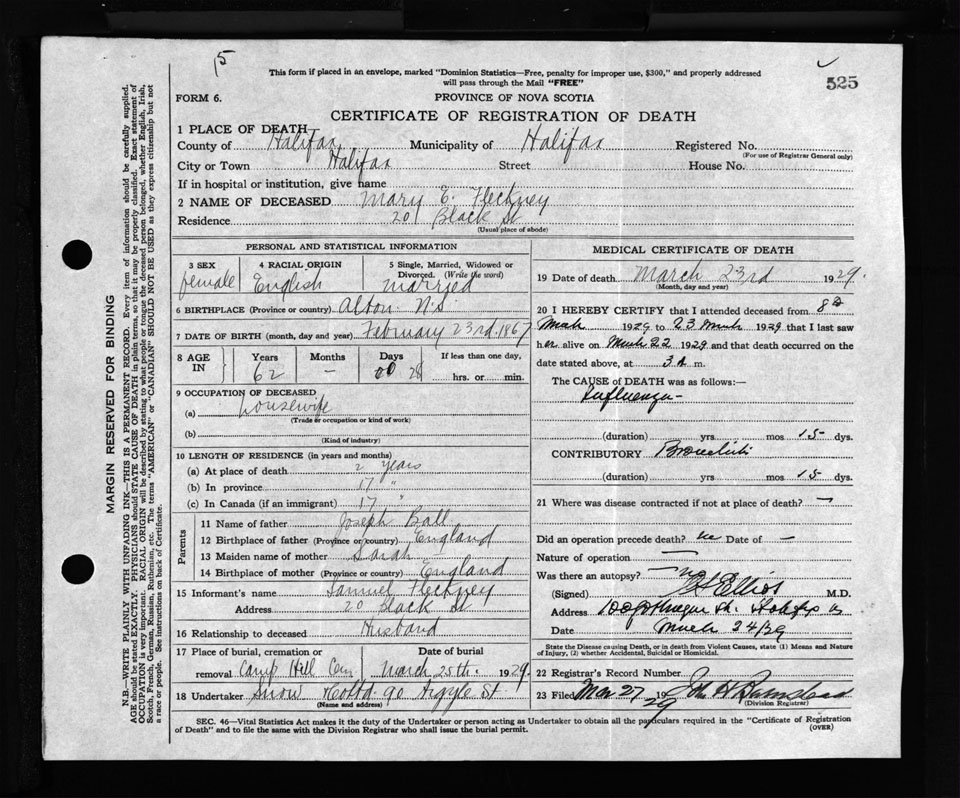 5
This form if placed in an envelope, marked "Dominion Statistics—Free, penalty for improper use, $300," and properly addressed
will pass through the Mail "FREE"
525
FORM 6.
PROVINCE OF NOVA SCOTIA
CERTIFICATE OF REGISTRATION OF DEATH
1 PLACE OF DEATH
County of Halifax Municipality of Halifax Registered No.
(For use of Registrar General only)
City or Town Halifax Street House No.
If in hospital or institution, give name
2 NAME OF DECEASED Mary E. Fleckney
Residence 20 Black St
(Usual place of abode)
PERSONAL AND STATISTICAL INFORMATION
3 SEX 4 RACIAL ORIGIN 5 Single, Married, Widowed or
Divorced. (Write the word)
female English married
6 BIRTHPLACE (Province or country) Alton N.S
7 DATE OF BIRTH (month, day and year) February 23rd. 1867
8 AGE IN Years Months Days If less than one day,
62 – 28 hrs. or min.
9 OCCUPATION OF DECEASED
(a) housewife
(Trade or occupation or kind of work)
(b)
(Kind of industry)
10 LENGTH OF RESIDENCE (in years and months)
(a) At place of death 2 years
(b) In province 17 "
(c) In Canada (if an immigrant) 17 "
Parents
11 Name of father Joseph Ball
12 Birthplace of father (Province or country) England
13 Maiden name of mother Sarah
14 Birthplace of mother (Province or country) England
15 Informant's name Samuel Fleckney
Address 20 Black St
16 Relationship to deceased Husband
17 Place of burial, cremation or removal Date of burial
Camp Hill Cem March 25th. 1929
18 Undertaker Snow Co Ltd 90 Argyle St
(Name and address)
MEDICAL CERTIFICATE OF DEATH
19 Date of death March 23rd 1929.
(Month, day and year)
20 I HEREBY CERTIFY that I attended deceased from 8th
March 1929 to 23 March 1929 that I last saw
her alive on March 22 1929 and that death occurred on the
date stated above, at 3 a m.
The CAUSE of DEATH was as follows:—
Influenza
(duration) yrs mos 15 dys.
CONTRIBUTORY Bronchitis
(duration) yrs mos 15 dys.
21 Where was disease contracted if not at place of death? —
Did an operation precede death? no Date of —
Nature of operation —
Was there an autopsy? no
(Signed) Elliot M.D.
Address Halifax
Date March 24/29
State the Disease causing Death, or in death from Violent Causes, state (1) Means and Nature
of Injury, (2) whether Accidental, Suicidal or Homicidal.
22 Registrar's Record Number
23 Filed Mar 27 1929
(Division Registrar)
SEC. 46—Vital Statistics Act makes it the duty of the Undertaker or person acting as Undertaker to obtain all the particulars required in the "Certificate of Registration
of Death" and to file the same with the Division Registrar who shall issue the burial permit.
(OVER)
MARGIN RESERVED FOR BINDING
N.B.—WRITE PLAINLY WITH UNFADING INK—THIS IS A PERMANENT RECORD. Every item of information should be carefully supplied.
AGE should be stated EXACTLY. PHYSICIANS should STATE CAUSE OF DEATH in plain terms, so that it may be properly classified. Exact statement of
OCCUPATION is very important. RACIAL ORIGIN will be described by stating to what people or tongue the deceased person belonged, whether English, Irish,
Scotch, French, German, Russian, Ruthenian, etc. The terms "AMERICAN" or "CANADIAN" SHOULD NOT BE USED as they express citizenship but not
a race or people. See instructions on back of Certificate.